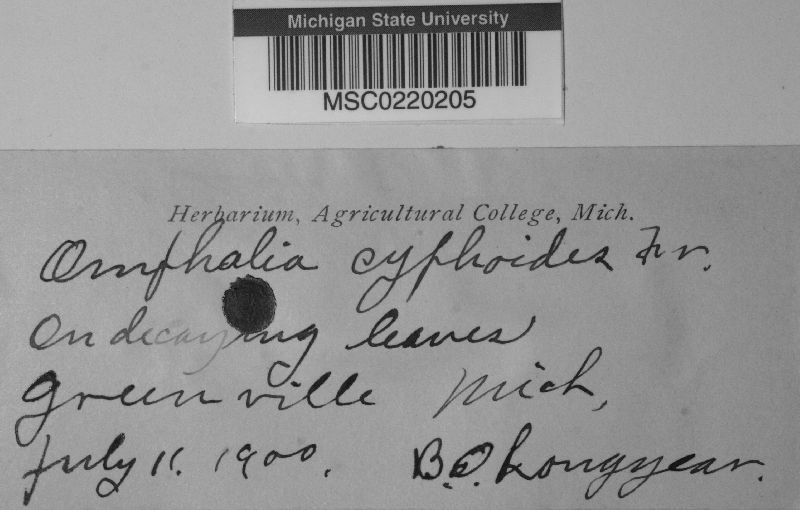 Michigan State University
MSC0220205
Herbarium, Agricultural College, Mich.
Omphalia cyphoides Fr.
On decaying leaves
Greenville Mich,
July 11. 1900. B.O. Longyear.